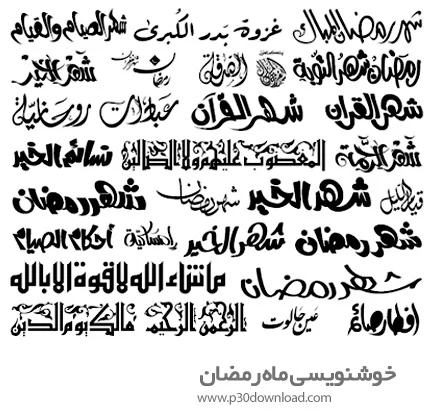 شهر رمضان المبارك غزوة بدر الكبرى شهر الصيام والقيام
رمضان شهر التوبة الصدقة رمضان شهر الخير
شهر القرآن شهر القرآن عبادات روحانية
شهر الرحمة المغضوب عليهم ولا الضالين نسائم الخير
قيام الليل شهر الخير شهر رمضان شهر رمضان
شهر رمضان شهر الخير إمساكية أحكام الصيام
شهر رمضان ماشاء الله لا قوة الا بالله
إفطار صائم عين جالوت الرحمن الرحيم مالك يوم الدين
خوشنویسی ماه رمضان
www.p30download.com